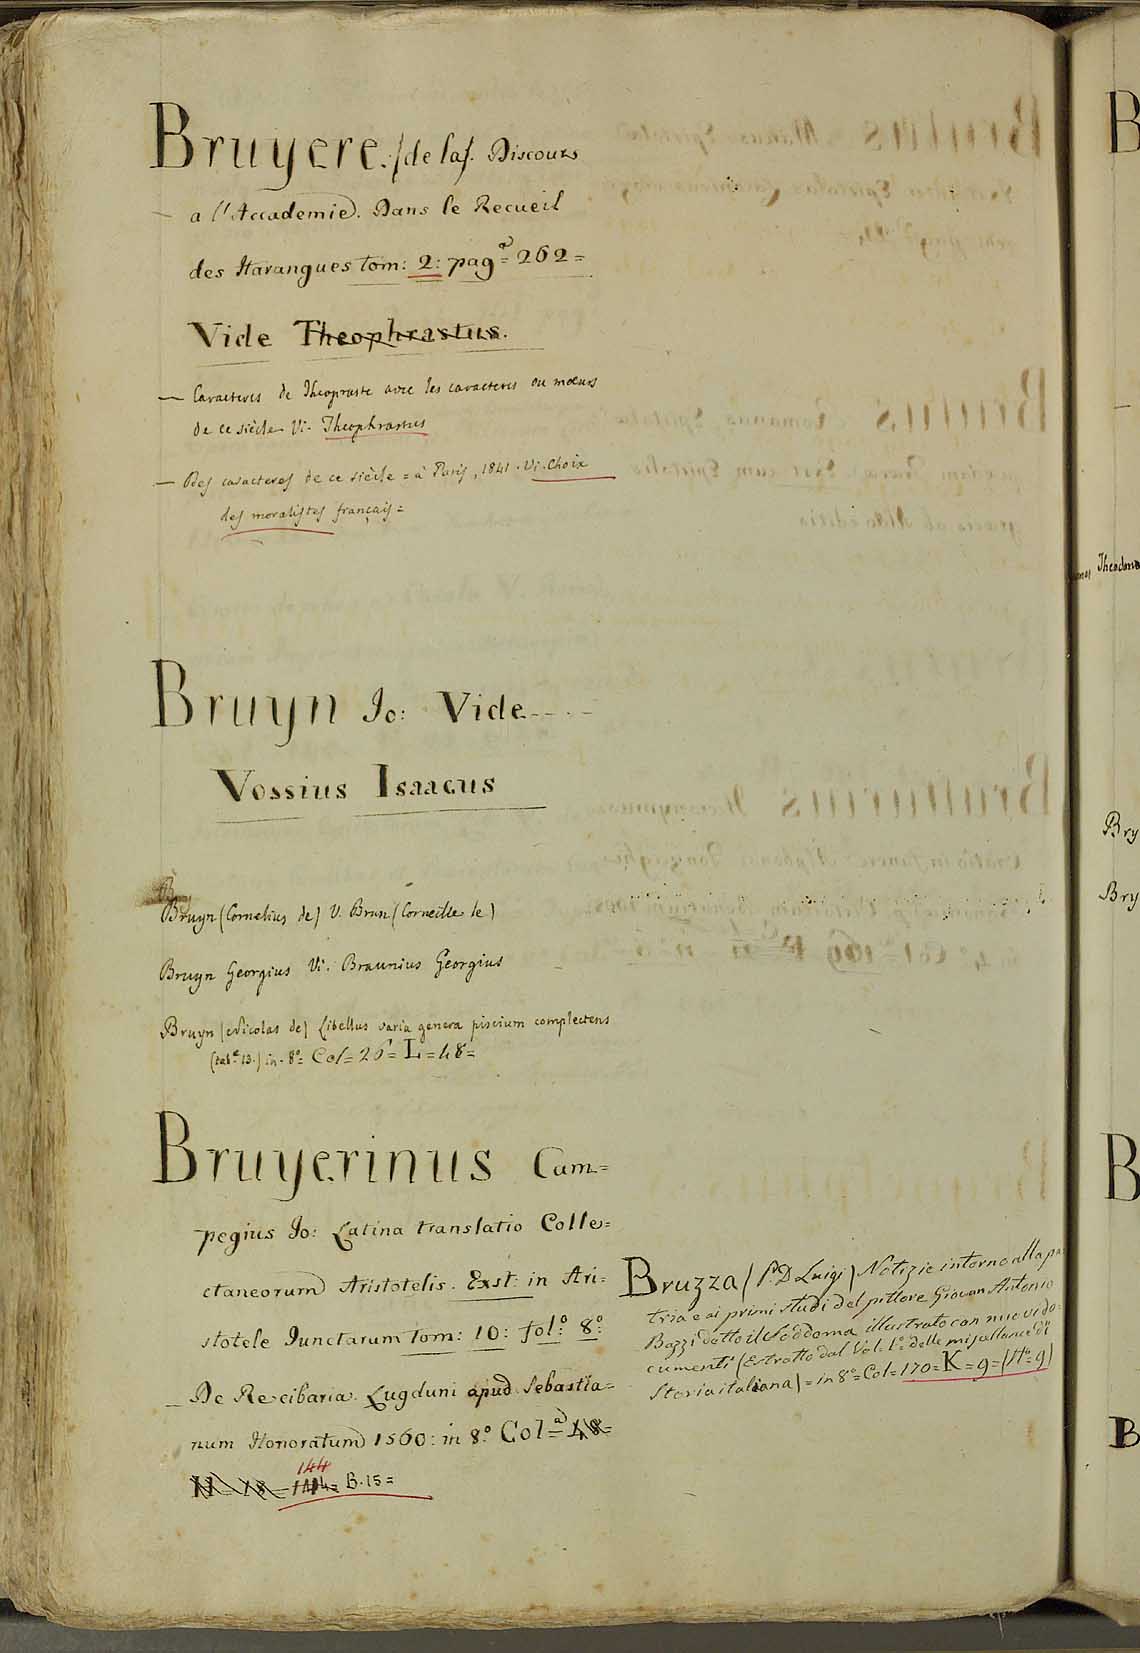 Bruyere. (de la). Discours
a l'Accademie. Dans le Recueil
des Harangues tom: 2: pag.ª 262=
Vide Theophrastus.
— Caracteres de Theopraste avec les caracteres ou mœurs
de ce siècle Vi. Theophrastus
— Des caracteres de ce siècle = à Paris, 1841. Vi. Choix
des moralistes français =
Bruyn Jo: Vide
Vossius Isaacus
Bruyn (Cornelius de) V. Brun (Corneille le)
Bruyn Georgius Vi. Braunius Georgius
Bruyn (Nicolas de) Libellus varia genera piscium complectens
(tab.e 13.) in-8º= Col= 26= L= 48=
Bruyerinus Cam=
pegius Jo: Latina translatio Colle=
ctaneorum Aristotelis. Exst: in Ari=
stotele Junctarum tom: 10: fol.º 8º:
De Re cibaria. Lugduni apud Sebastia=
num Honoratum 1560: in 8º. Col=ª 48=
N= 18= 144= B. 15=
144
Bruzza (P. D Luigi) Notizie intorno alla pa
tria e ai primi studi del pittore Giovan Antonio
Bazzi detto il Soddoma illustrato con nuovi do=
cumenti (Estratto dal Vol. 1º. delle miscellanee di
Storia italiana) = in 8º= Col= 170= K= 9= (Nº 9)
B
Theodorus
Bry
Bry
B
B